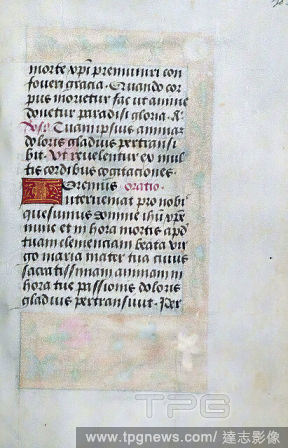 morte xpi premuniri con
foveri gracia. Quando cor
pus morietur fac ut anime
donetur paradisi gloria. A
Tuam ipsius animam
doloris gladius pertransi
bit. Ut revelentur ex mul
tis cordibus cogitaciones.
Oremus oratio.
Interveniat pro nobis
quesumus domine ihu xpe
nunc et in hora mortis apd
tuam clemenciam beata vir
go maria mater tua cuius
sacratissimam animam in
hora tue passionis doloris
gladius pertransivit. Per
TPG
www.tpgnews.com / 達志影像